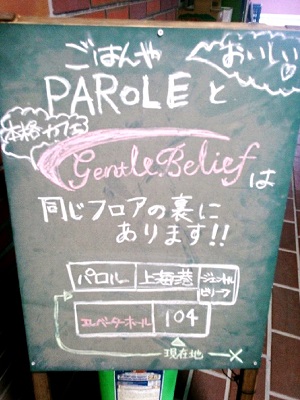 ごはんや
おいしい
PAROLE と
本格カフェ
Gentle.Belief は
同じフロアの裏に
あります!!
パロル 上海港 ジェントルビリーフ
エレベーターホール 104
現在地